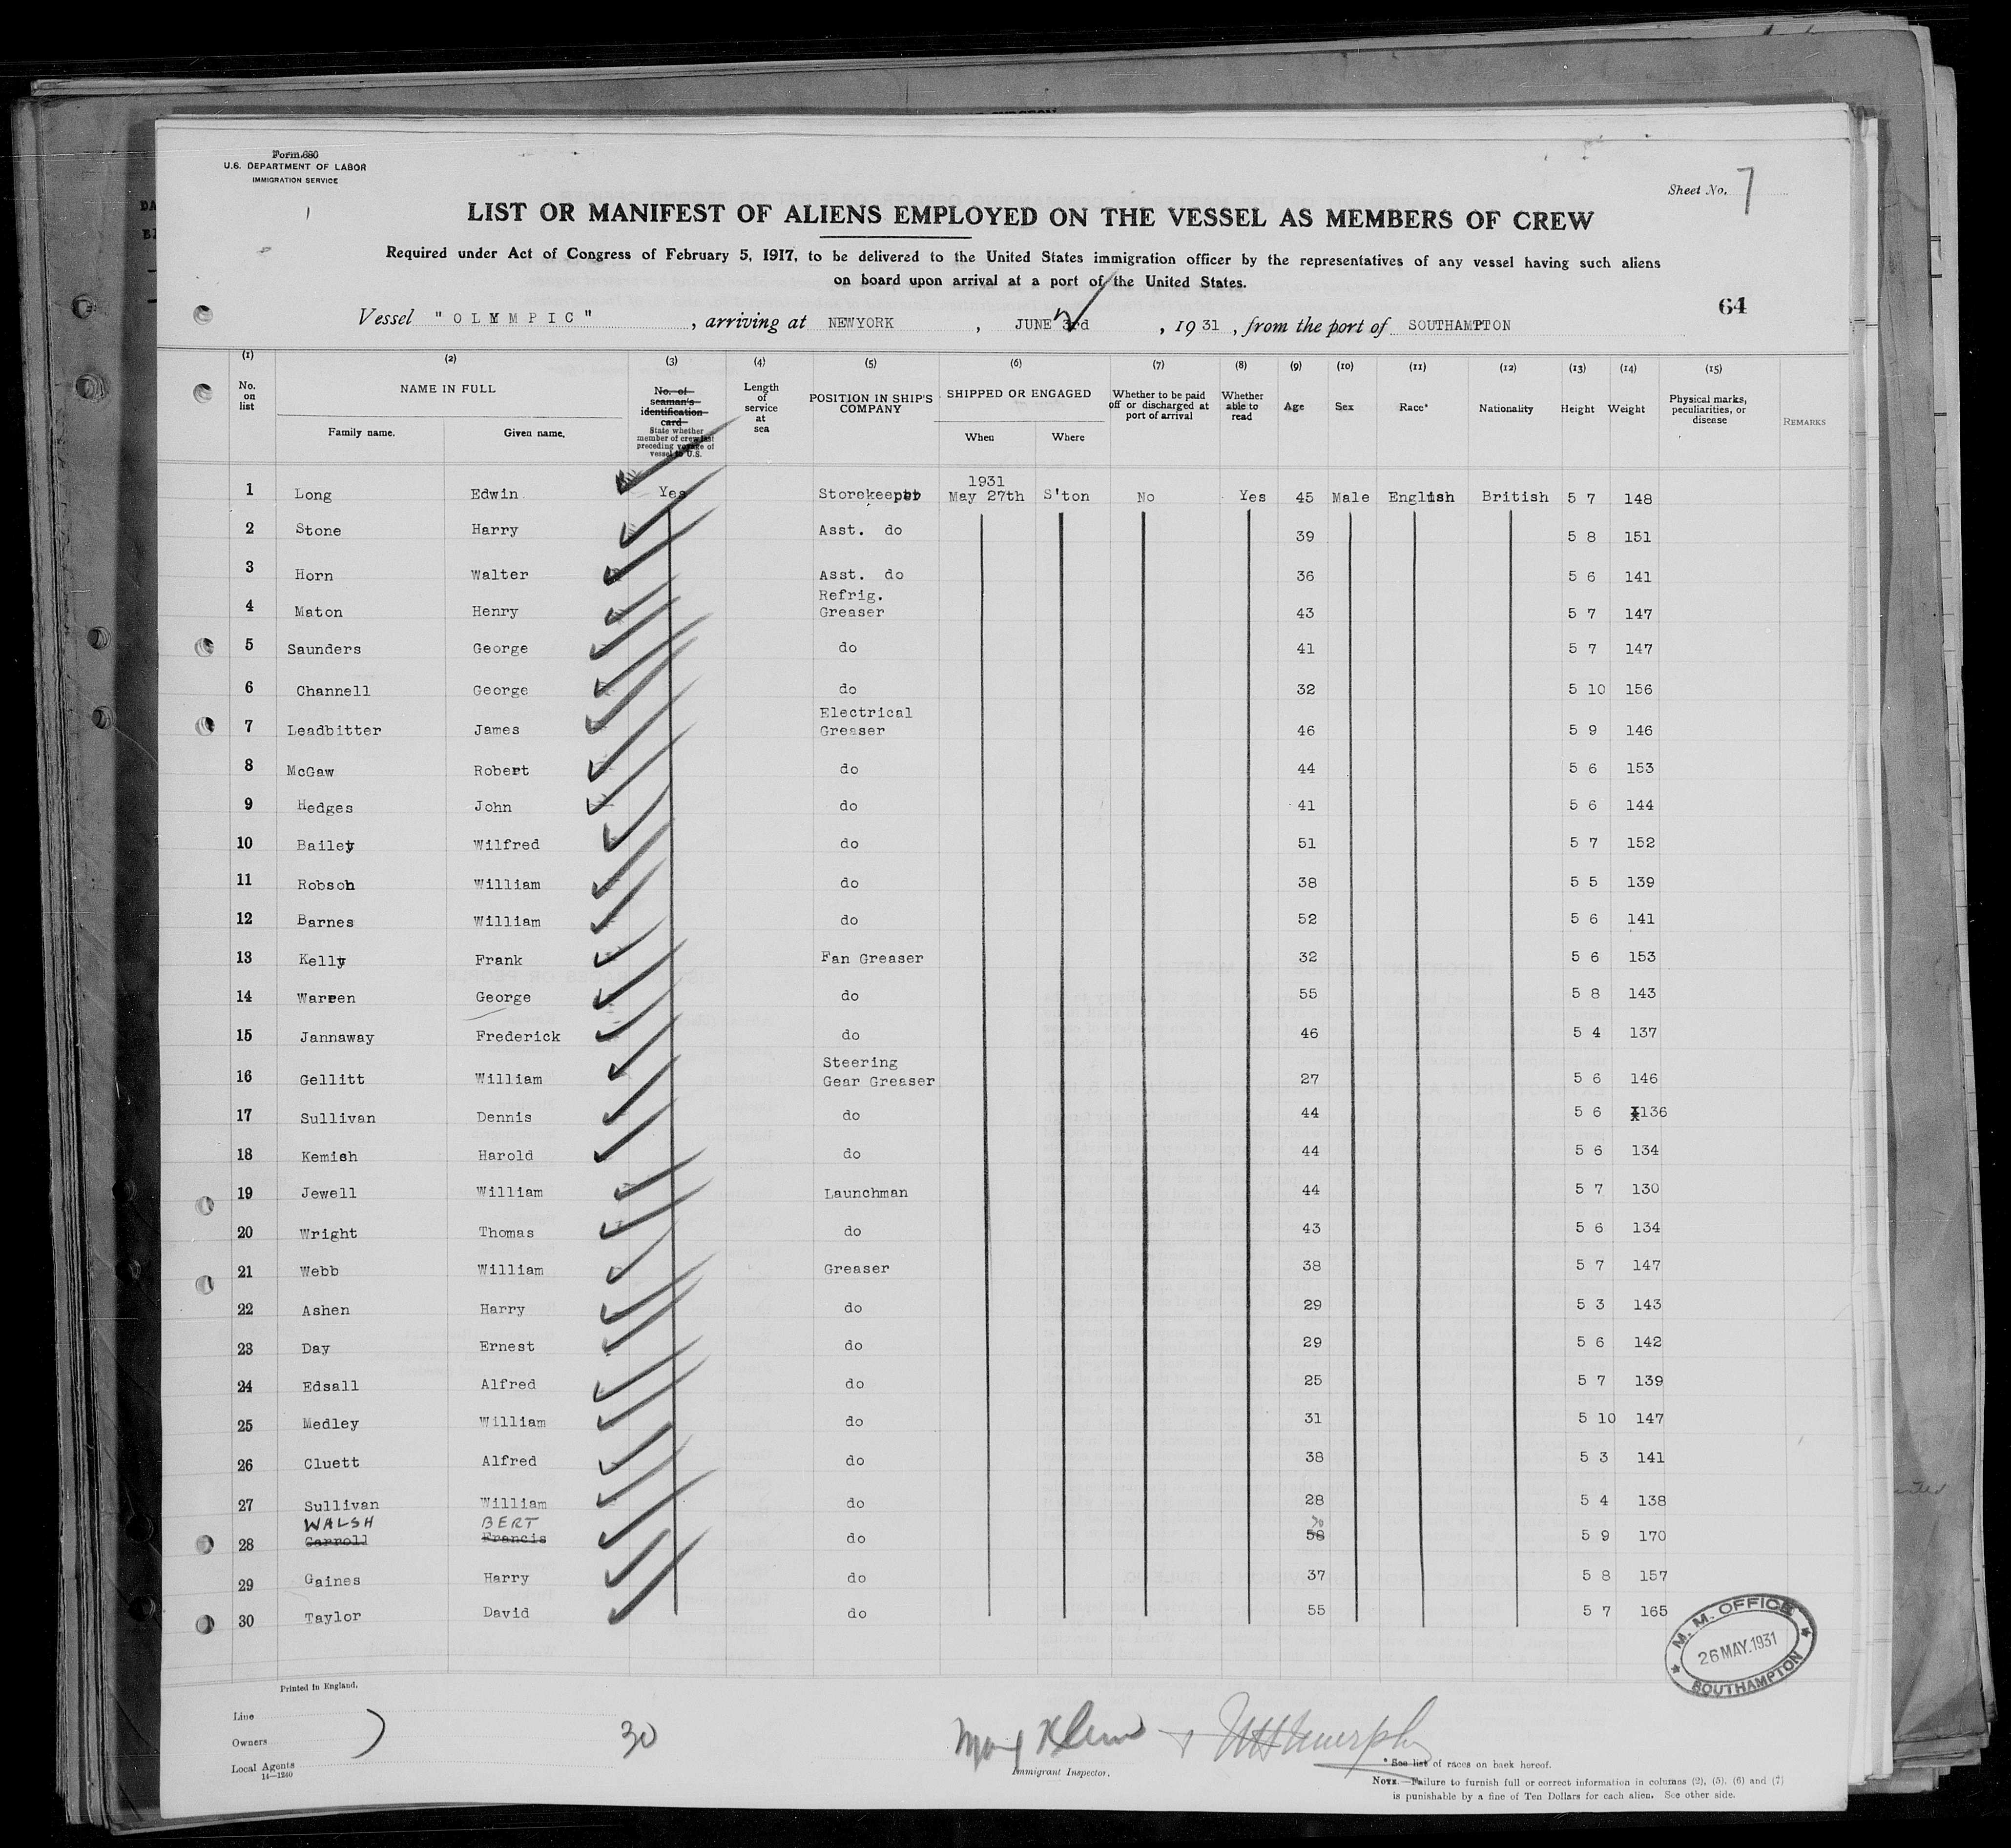 Form 680
U.S. DEPARTMENT OF LABOR
IMMIGRATION SERVICE
Sheet No. 7
LIST OR MANIFEST OF ALIENS EMPLOYED ON THE VESSEL AS MEMBERS OF CREW
Required under Act of Congress of February 5, 1917, to be delivered to the United States immigration officer by the representatives of any vessel having such aliens
on board upon arrival at a port of the United States.
64
Vessel "OLYMPIC", arriving at NEWYORK, JUNE 3rd, 1931, from the port of SOUTHAMPTON
(1) (2) (3) (4) (5) (6) (7) (8) (9) (10) (11) (12) (13) (14) (15)
No. on list NAME IN FULL Family name. Given name. No. of seaman's identification card State whether member of crew last preceding voyage of vessel to U.S. Length of service at sea POSITION IN SHIP'S COMPANY SHIPPED OR ENGAGED When Where Whether to be paid off or discharged at port of arrival Whether able to read Age Sex Race* Nationality Height Weight Physical marks, peculiarities, or disease REMARKS
1 Long Edwin Yes Storekeeper 1931 May 27th S'ton No Yes 45 Male English British 5 7 148
2 Stone Harry Asst. do 39 5 8 151
3 Horn Walter Asst. do 36 5 6 141
4 Maton Henry Refrig. Greaser 43 5 7 147
5 Saunders George do 41 5 7 147
6 Channell George do 32 5 10 156
7 Leadbitter James Electrical Greaser 46 5 9 146
8 McGaw Robert do 44 5 6 153
9 Hedges John do 41 5 6 144
10 Bailey Wilfred do 51 5 7 152
11 Robson William do 38 5 5 139
12 Barnes William do 52 5 6 141
13 Kelly Frank Fan Greaser 32 5 6 153
14 Warren George do 55 5 8 143
15 Jannaway Frederick do 46 5 4 137
16 Gellitt William Steering Gear Greaser 27 5 6 146
17 Sullivan Dennis do 44 5 6 136
18 Kemish Harold do 44 5 6 134
19 Jewell William Launchman 44 5 7 130
20 Wright Thomas do 43 5 6 134
21 Webb William Greaser 38 5 7 147
22 Ashen Harry do 29 5 3 143
23 Day Ernest do 29 5 6 142
24 Edsall Alfred do 25 5 7 139
25 Medley William do 31 5 10 147
26 Cluett Alfred do 38 5 3 141
27 Sullivan William do 28 5 4 138
WALSH BERT
28 Carroll Francis do 58 5 9 170
29 Gaines Harry do 37 5 8 157
30 Taylor David do 55 5 7 165
M. M. OFFICE
26 MAY. 1931
SOUTHAMPTON
Printed in England.
Line
Owners
Local Agents
14—1240
30
Immigrant Inspector.
* See list of races on back hereof.
NOTE.—Failure to furnish full or correct information in columns (2), (5), (6) and (7)
is punishable by a fine of Ten Dollars for each alien. See other side.